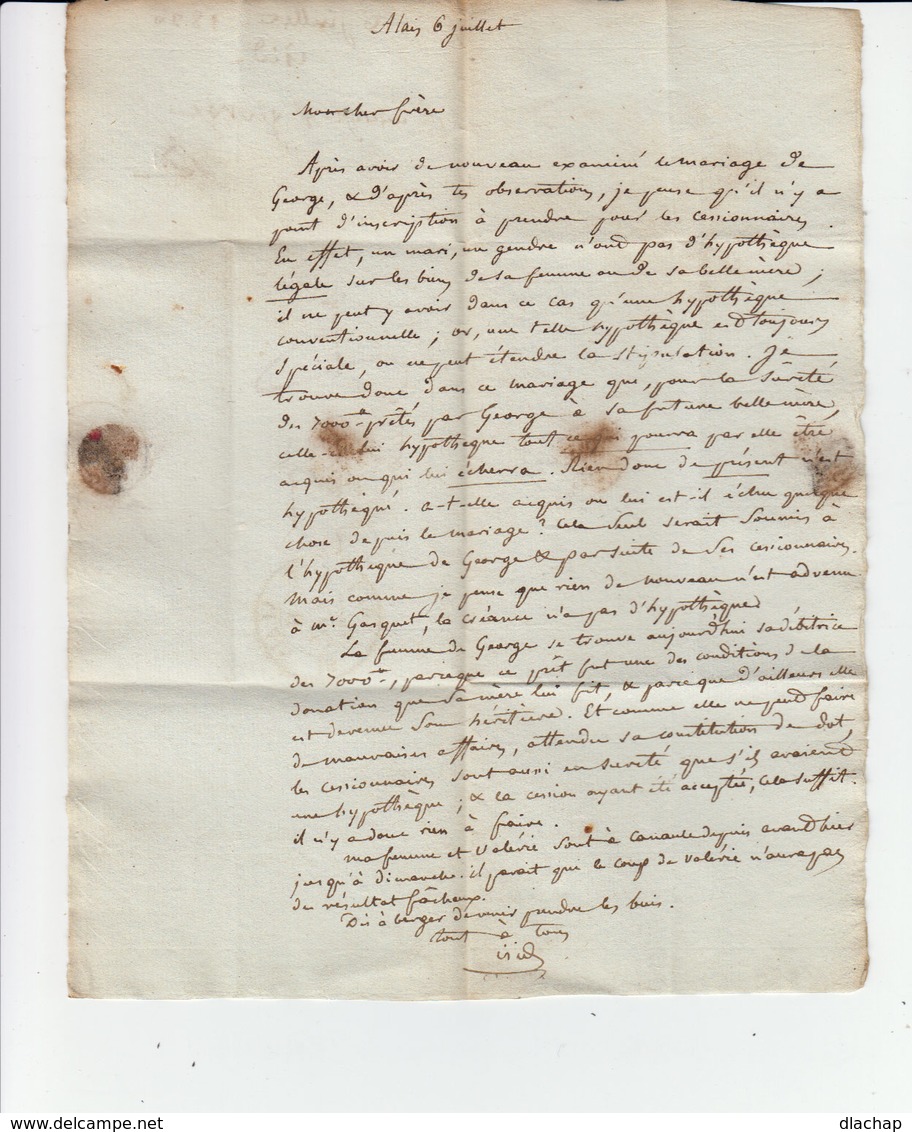 Alais 6 juillet
Mon cher frère
Après avoir de nouveau examiné le mariage de
George, & d'après tes observations, je pense qu'il n'y a
point d'inscription à prendre pour les cessionnaires
En effet, un mari, un gendre n'ont pas d'hypothèque
légale sur les biens de sa femme ou de sa belle mère ;
il ne peut y avoir dans ce cas qu'une hypothèque
conventionnelle ; or, une telle hypothèque est toujours
spéciale, on ne peut étendre la stipulation. Je
trouve donc dans ce mariage que, pour la sûreté
des 7000 prêtés par George à sa future belle mere,
celle-ci lui hypothèque tout ce qui pourra par elle être
acquis ou qui lui écherra. Rien donc de présent n'est
hypothéqué. a-t-elle acquis ou lui est-il échu quelque
chose depuis le mariage ? Cela seul serait soumis à
l'hypothèque de George & par suite de ses cessionnaires.
Mais comme je pense que rien de nouveau n'est advenu
à Mr. Gasquet, la créance n'a pas d'hypothèque
La femme de George se trouve aujourdhui sa débitrice
des 7000, parceque ce prêt fut une des conditions de la
donation que sa mère lui fit, & parceque d'ailleurs elle
est devenue son héritière. Et comme elle ne peut faire
de mauvaises affaires, attendu sa constitution de dot,
les cessionnaires sont aussi en sureté que s'il avaient
une hypothèque ; & la cession ayant été acceptée, cela suffit.
il n'y a donc rien à faire.
ma femme et Valérie sont à depuis avant hier
jusqu'à dimanche. il parait que le coup de Valérie n'aura pas
de résultat fâcheux.
Dis à berger de venir prendre les bois.
tout à tous
dlachap